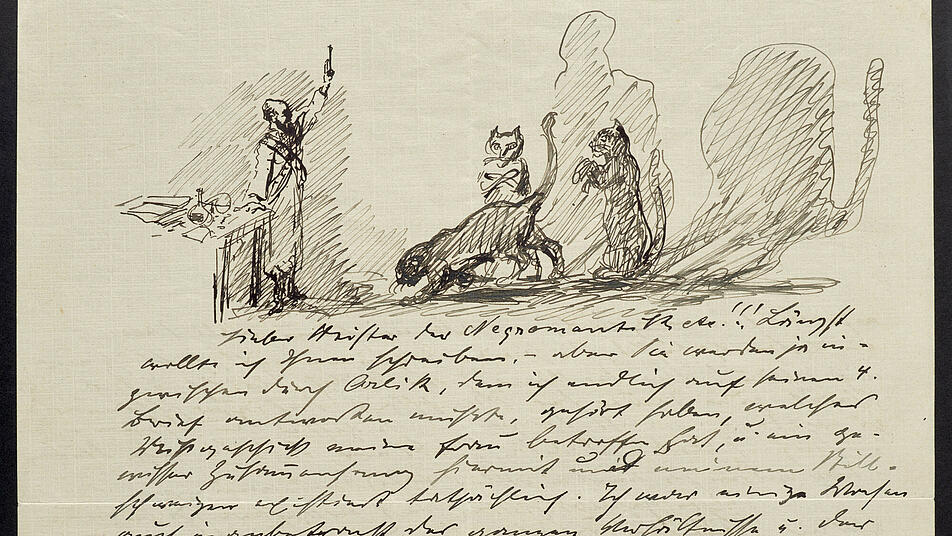 Lieber Meister der Negromantik etc.!!! Längst
wollte ich Ihnen schreiben, – aber Sie werden ja in-
zwischen durch Orlik, dem ich endlich auf seinen 4.
Brief antworten musste, gehört haben, welches
Missgeschick meine Frau betroffen hat, u. ein ge-
wisser Zusammenhang hiermit und meinem Still-
schweigen existiert tatsächlich. Ich war einige Wochen
ganzen Verhältnisse u. der